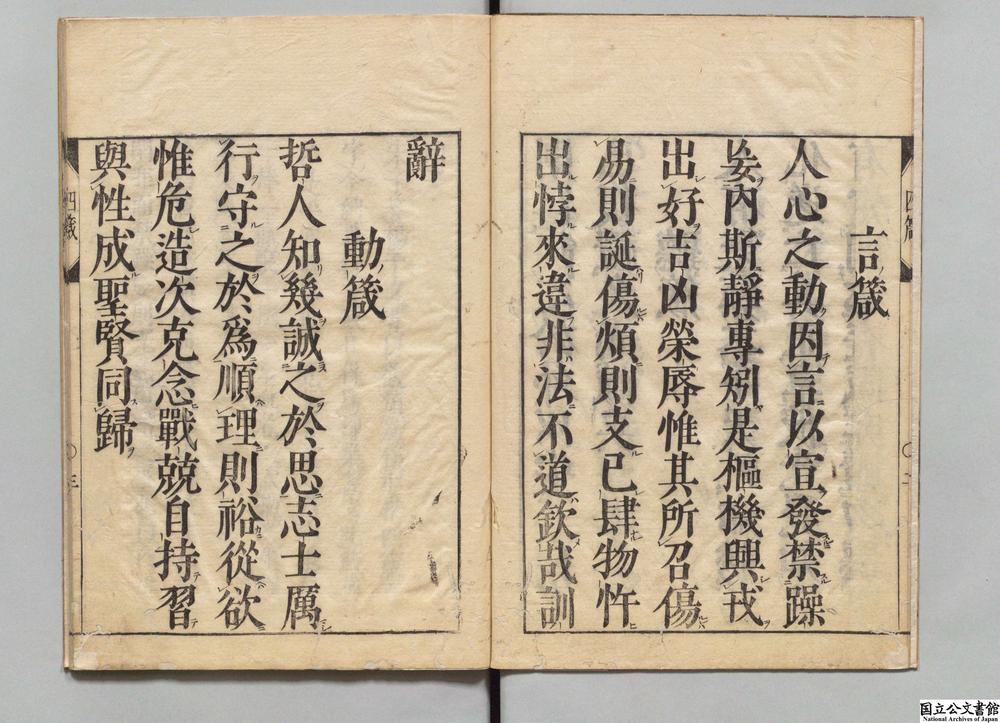 言箴
人心之動因言以宣發禁躁
妄內斯靜專矧是樞機興戎
出好吉凶榮辱惟其所召傷
易則誕傷煩則支已肆物忤
出悖來違非法不道欽哉訓
辭
動箴
哲人知幾誠之於思志士厲
行守之於爲順理則裕從欲
惟危造次克念戰兢自持習
與性成聖賢同歸
四箴
二
四箴
三
国立公文書館
National Archives of Japan